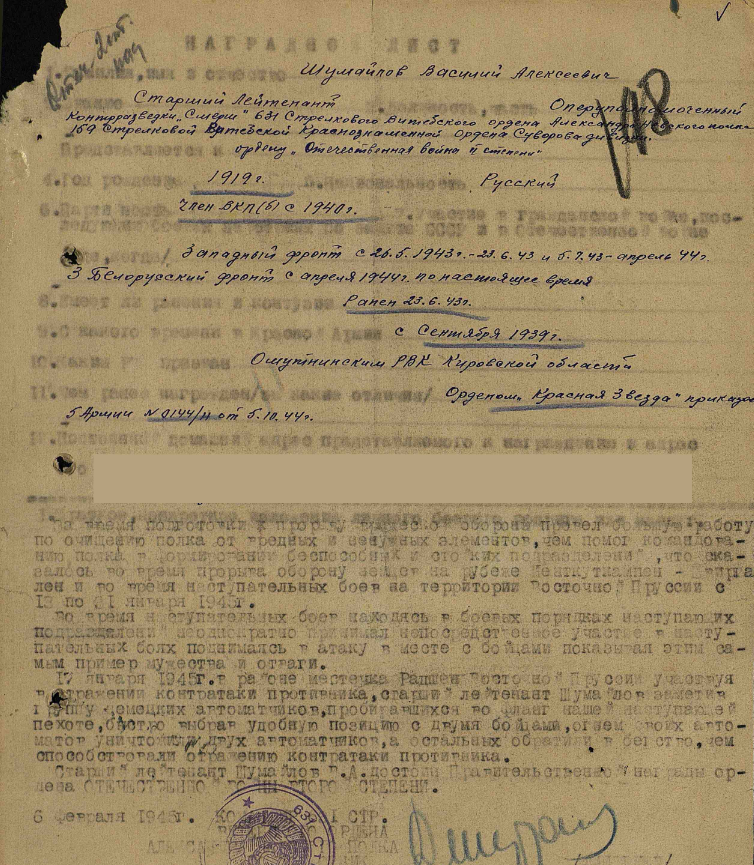 НАГРАДНОЙ ЛИСТ
Шумайлов Василий Алексеевич
Старший Лейтенант Оперуполномоченный
Контрразведки „Смерш" 631 Стрелкового Витебского ордена Александра Невского полка
159 Стрелковой Витебской Краснознаменной Ордена Суворова дивизии.
ордену „Отечественная война II степени"
4. Год рождения 1919г. Национальность Русский
6. Член ВКП(б) с 1940г. 7. Участие в гражданской войне, пос-
ледующих боевых СССР и в Отечественной войне
/где, когда/ Западный фронт с 26.5.1943г.-23.6.43 и 5.7.43-апрель 44г.
3 Белорусский фронт с апреля 1944г. по настоящее время
8. Имеет ли ранения и контузии Ранен 23.6.43г.
9. С какого времени в Красной Армии с Сентября 1939г.
10. Каким РВК призван Омутнинским РВК Кировской области
11. Чем ранее награжден /за какие отличия/ Орденом „Красная Звезда" приказом
5 Армии №0144/н от 5.10.44г.
12. Постоянный домашний адрес представляемого к награждению и адрес
его
За время подготовки к прорыву обороны провел большую работу
по очищению полка от вредных и ненужных элементов, чем помог командова-
нию полка в формировании боеспособных и стойких подразделений, что ска-
залось во время прорыва обороны немцев на рубеже
лен и во время наступательных боев на территории Восточной Пруссии с
13 по 31 января 1945г.
Во время наступательных боев находясь в боевых порядках наступающих
подразделений неоднократно принимал непосредственное участие в насту-
пательных боях поднимаясь в атаку в месте с бойцами показывая этим са-
мым пример мужества и отваги.
17 января 1945г. в районе местечка Радшен Восточной Пруссии участвуя
в отражении контратаки противника, старший лейтенант Шумайлов заметив
группу немецких автоматчиков, пробиравшихся во фланг нашей наступающей
пехоте, быстро выбрав удобную позицию с двумя бойцами, огнем своих авто-
матов уничтожили двух автоматчиков, а остальных обратили в бегство, чем
способствовали отражению контратаки противника.
Старший лейтенант Шумайлов В.А. достоин Правительственной награды ор-
дена ОТЕЧЕСТВЕННОЙ ВОЙНЫ ВТОРОЙ СТЕПЕНИ.
6 февраля 1945г. СТР.
ОРДЕНА
ПОЛКА
631